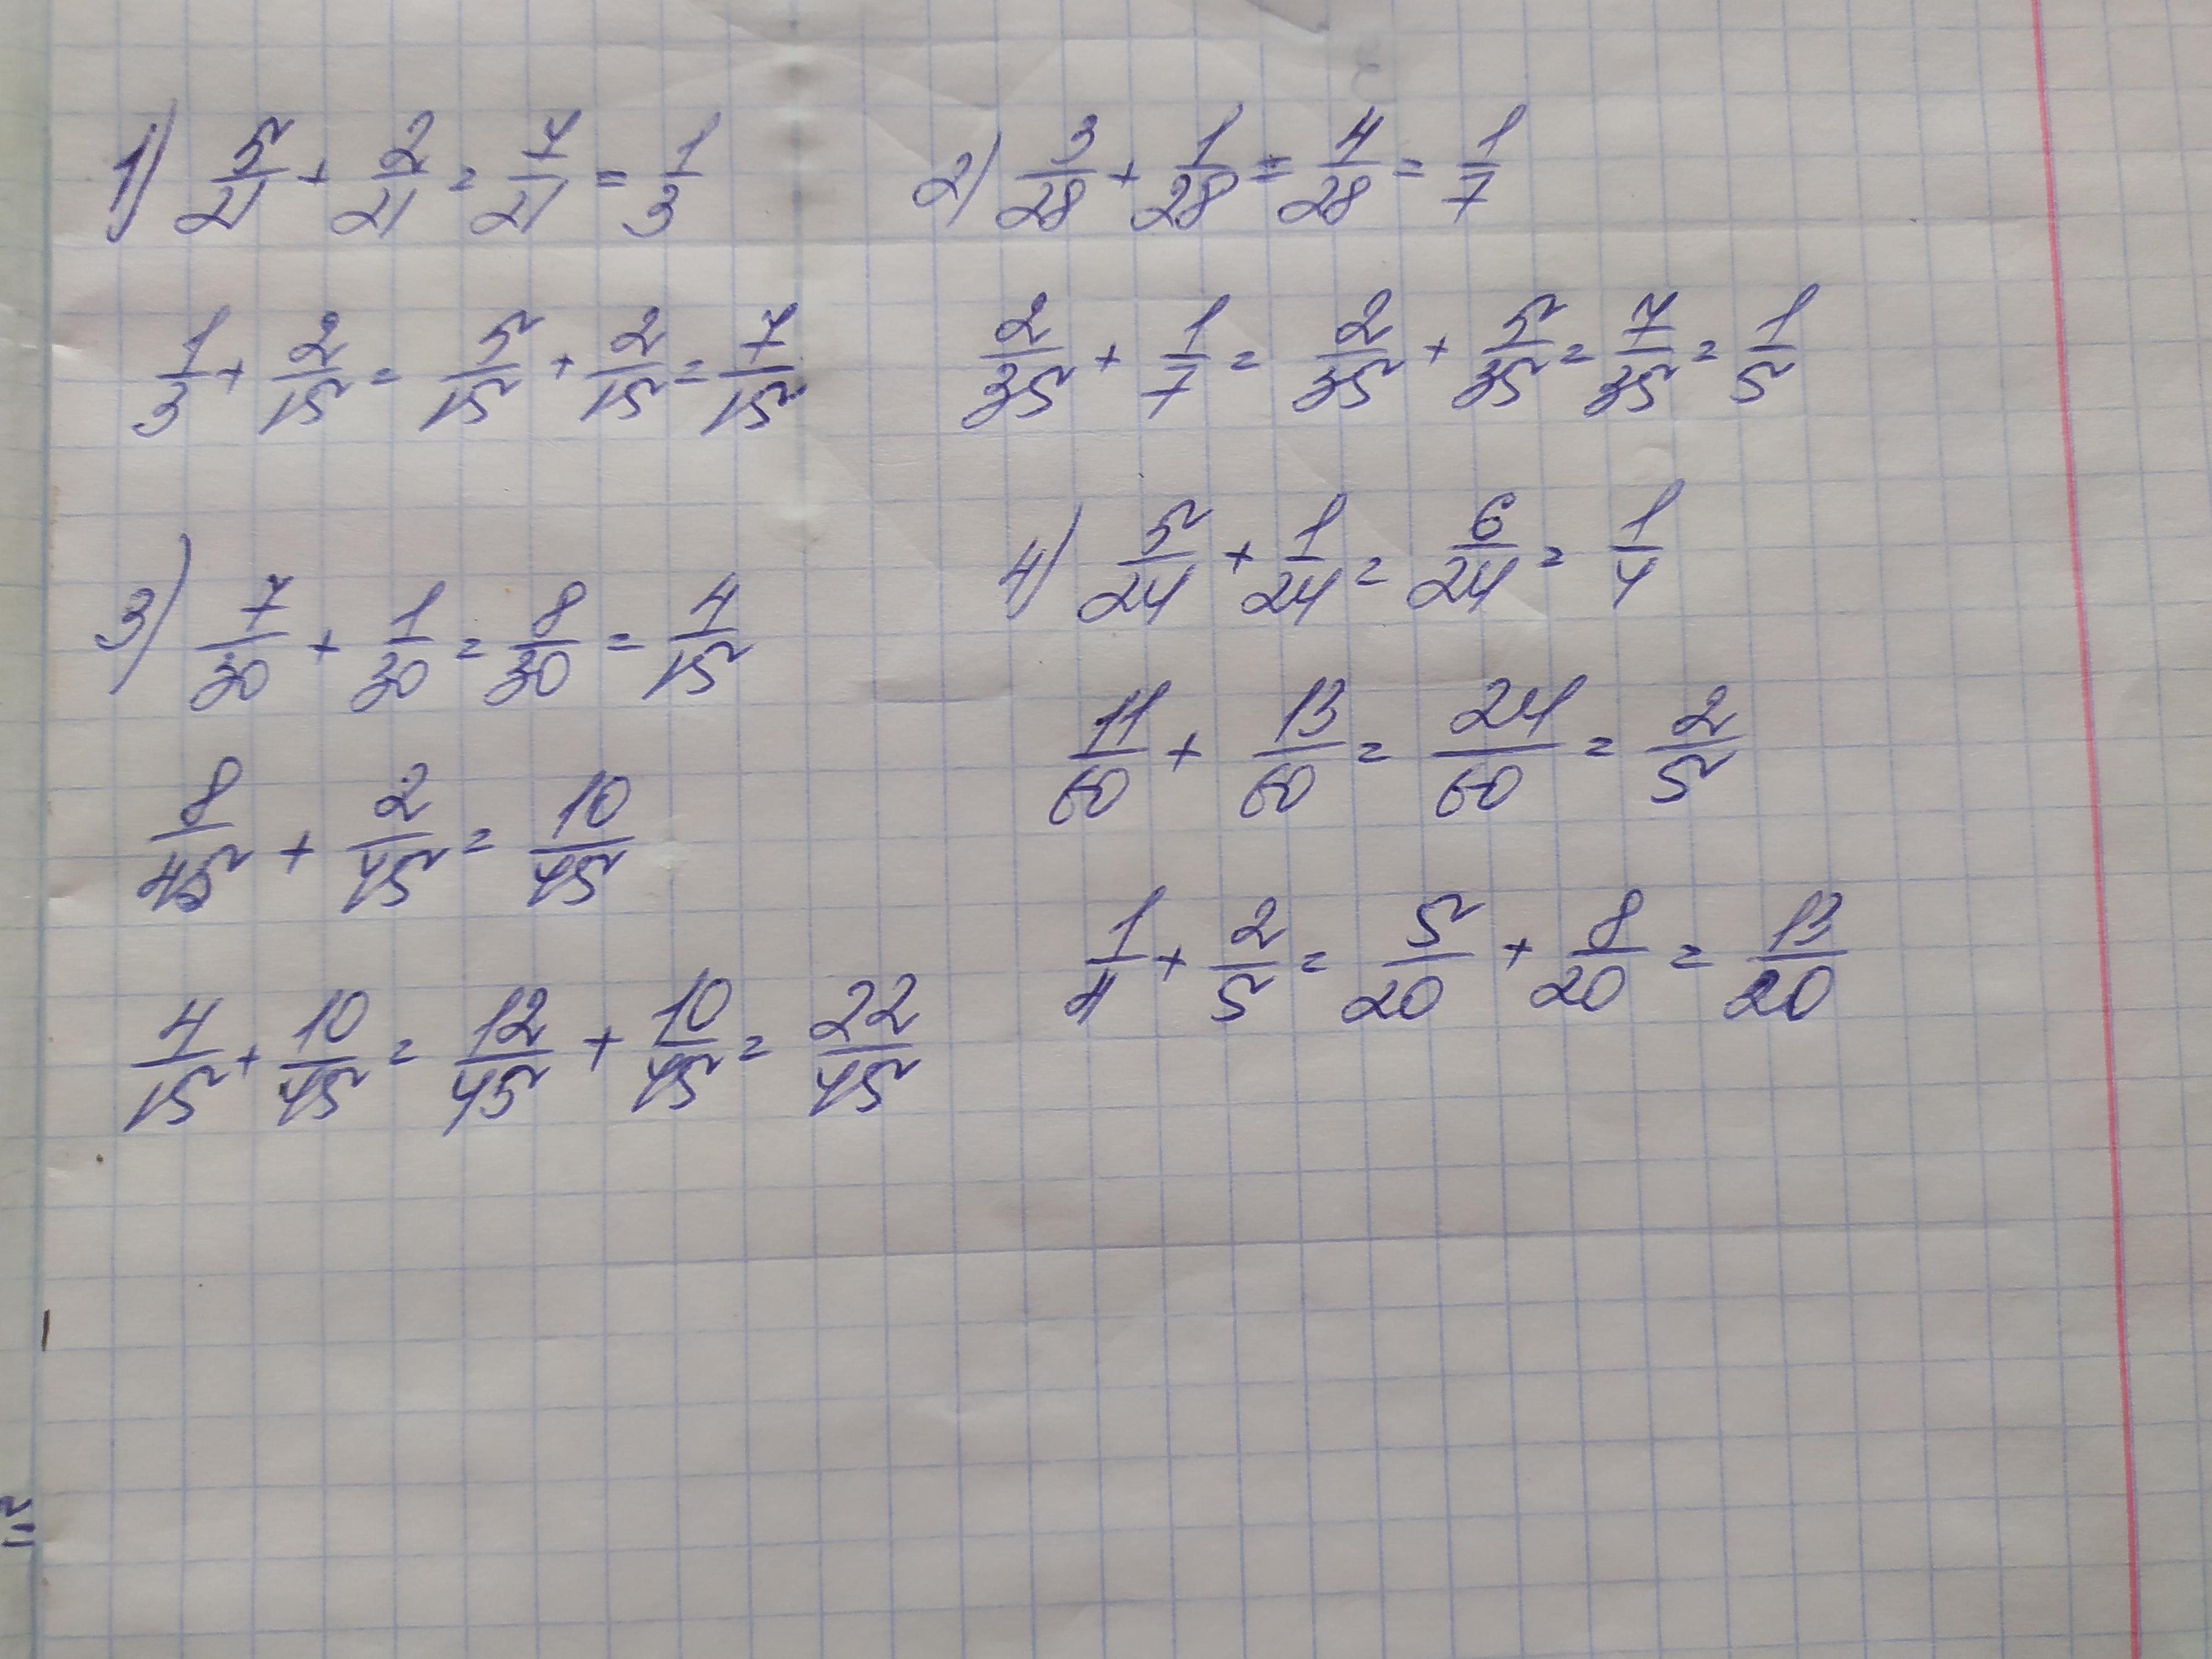 1) 5/21 + 2/21 = 7/21 = 1/3
1/3 + 2/15 = 5/15 + 2/15 = 7/15
2) 3/28 + 1/28 = 4/28 = 1/7
2/35 + 1/7 = 2/35 + 5/35 = 7/35 = 1/5
3) 7/30 + 1/30 = 8/30 = 4/15
8/45 + 2/45 = 10/45
4/15 + 10/45 = 12/45 + 10/45 = 22/45
4) 5/24 + 1/24 = 6/24 = 1/4
11/60 + 13/60 = 24/60 = 2/5
1/4 + 2/5 = 5/20 + 8/20 = 13/20